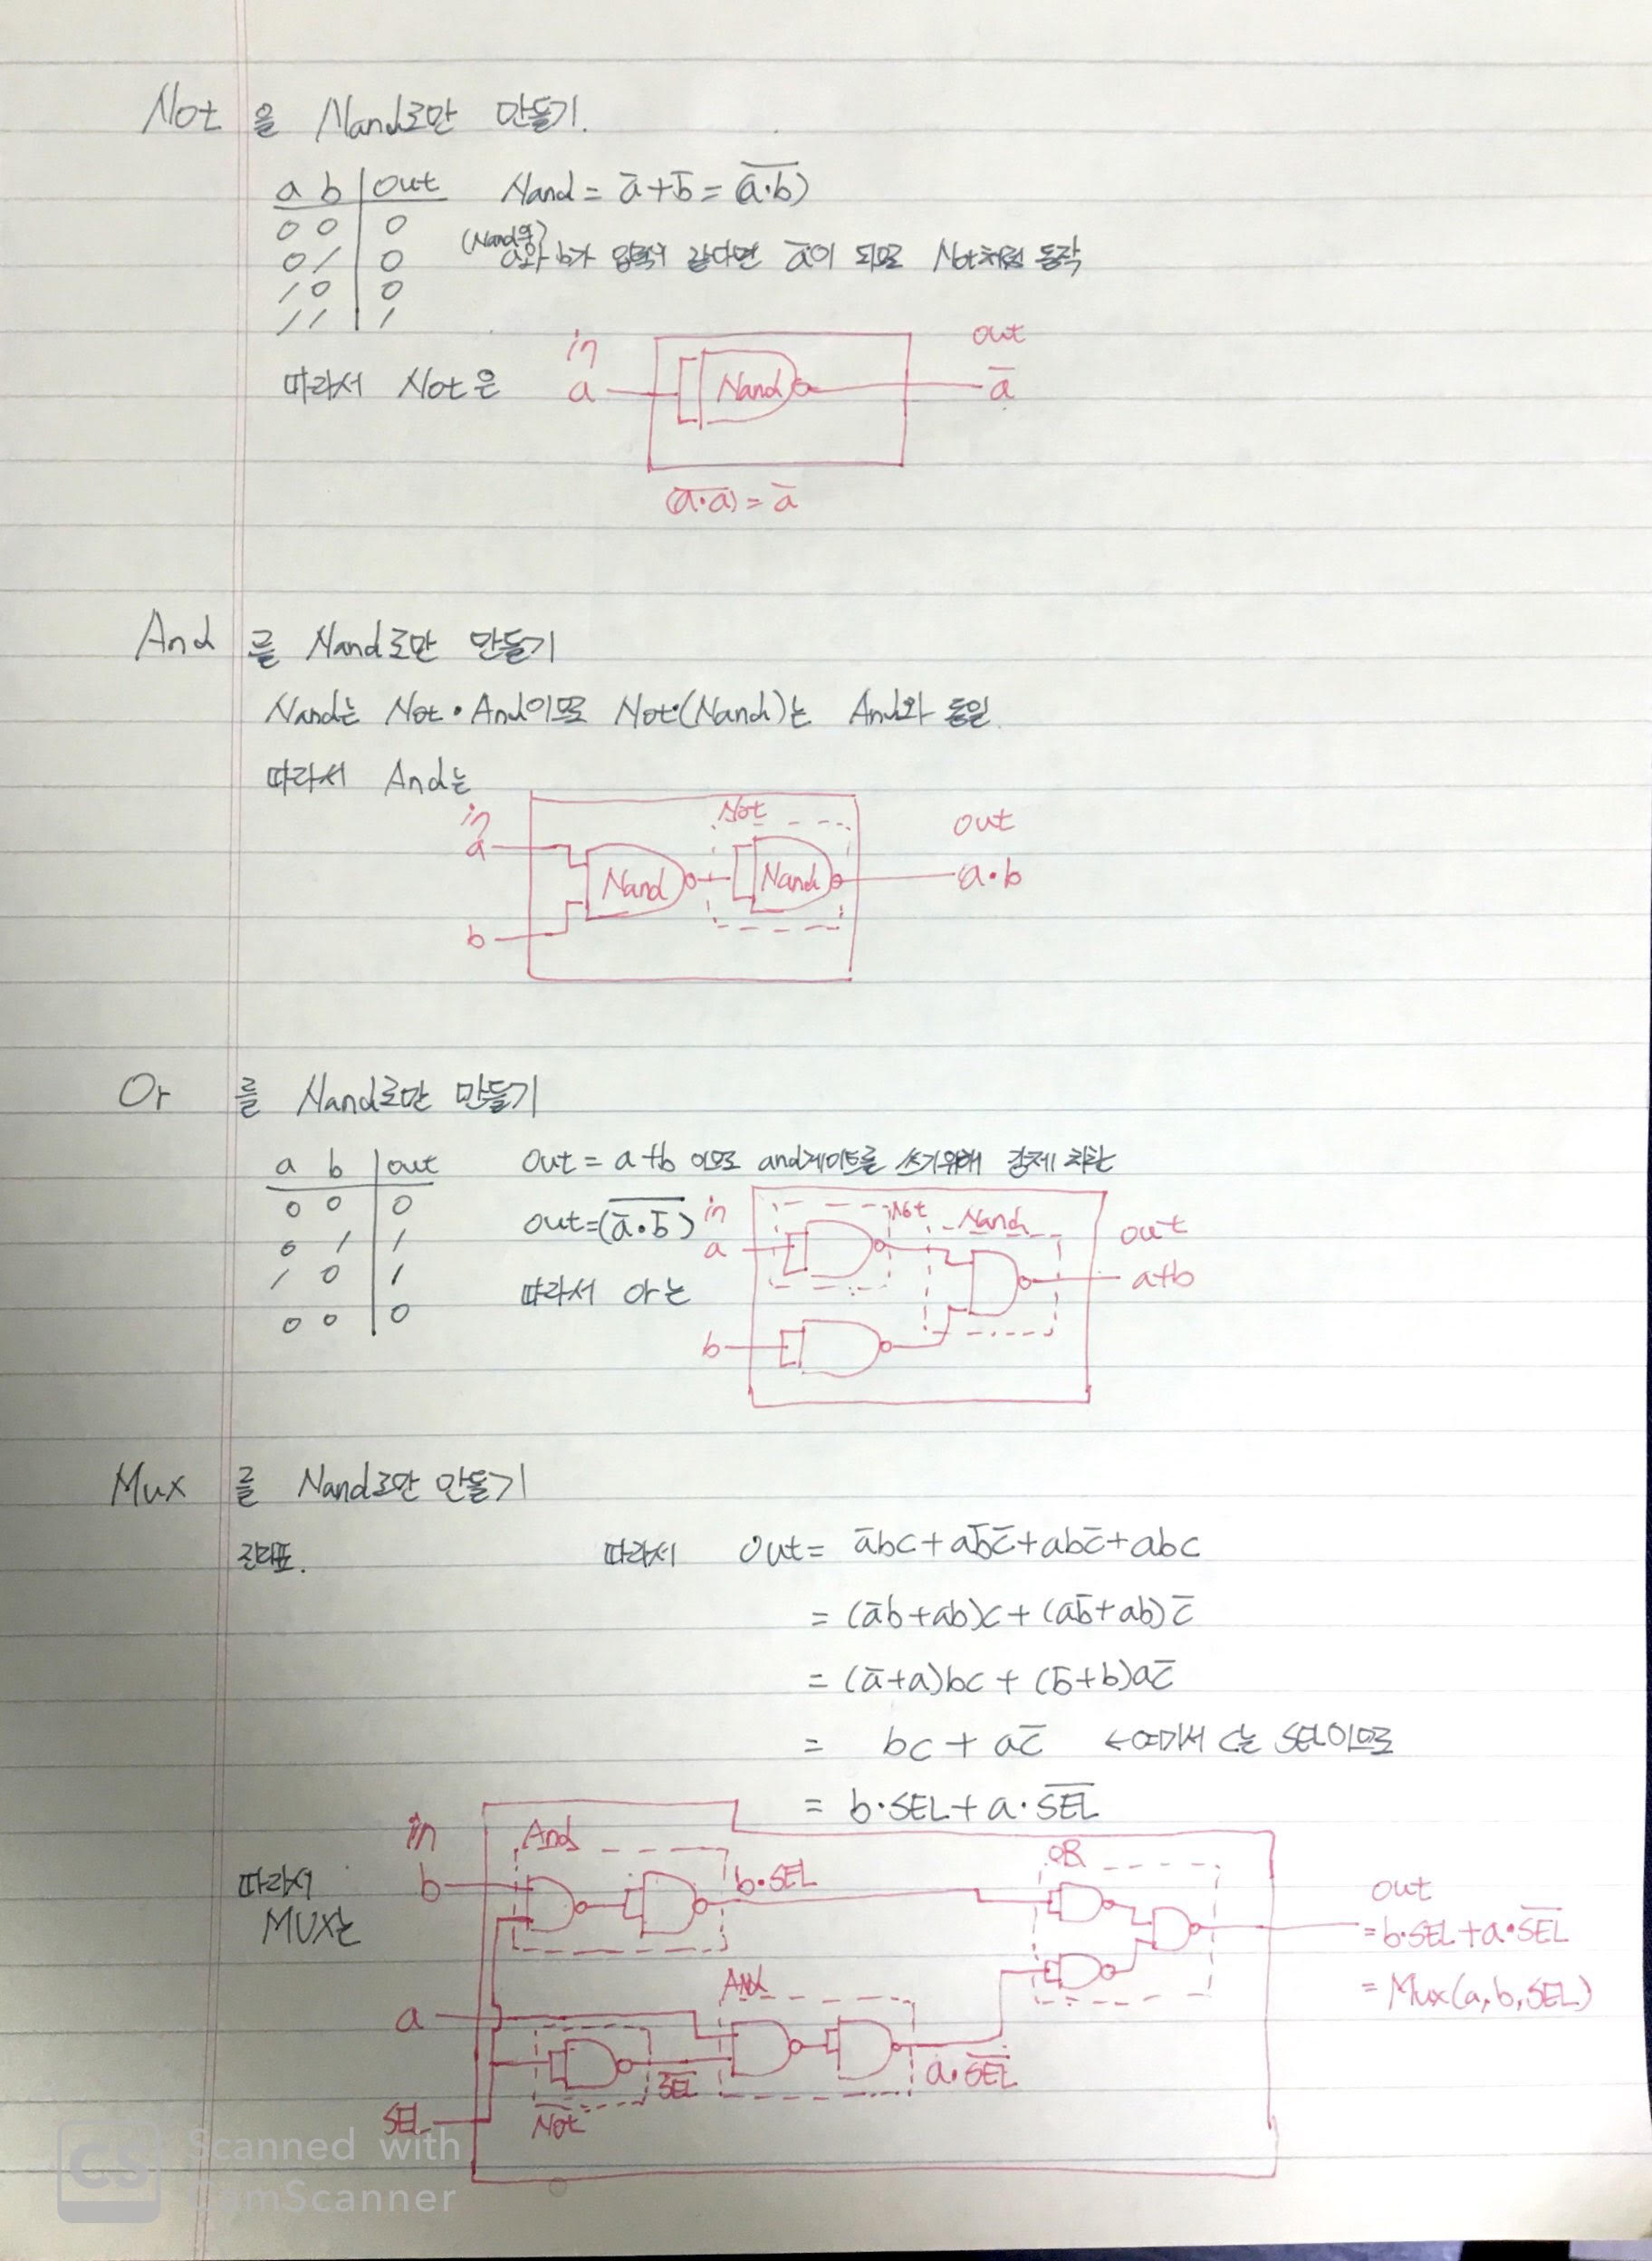 Not 을 Nand로만 만들기.
a b | out
0 0 | 0
0 1 | 0
1 0 | 0
1 1 | 1
Nand = a̅+b̅ = (a·b)̅
(Nand의)
a와 b가 입력이 같다면 a̅이 되므로 Not처럼 동작
따라서 Not은
in
a
Nand
out
a̅
(a·a)̅ = a̅
And 를 Nand로만 만들기
Nand는 Not·And이므로 Not·(Nand)는 And와 동일.
따라서 And는
in
a
b
Nand
Not
Nand
out
a·b
Or 를 Nand로만 만들기
a b | out
0 0 | 0
0 1 | 1
1 0 | 1
0 0 | 0
Out = a+b 이므로 and게이트를 쓰기위해 강제 치환
out=(a̅·b̅)̅
따라서 or는
in
a
b
Not
Nand
out
a+b
Mux 를 Nand로만 만들기
진리표.
따라서 Out = a̅bc+ab̅c̅+abc̅+abc
= (a̅b+ab)c+(ab̅+ab)c̅
= (a̅+a)bc + (b̅+b)ac̅
= bc + ac̅ ←여기서 c는 SEL이므로
= b·SEL+a·S̅E̅L̅
따라서
MUX는
in
b
a
SEL
And
b·SEL
Not
S̅E̅L̅
And
a·S̅E̅L̅
OR
out
=b·SEL+a·S̅E̅L̅
= Mux(a,b,SEL)
CS
Scanned with
CamScanner